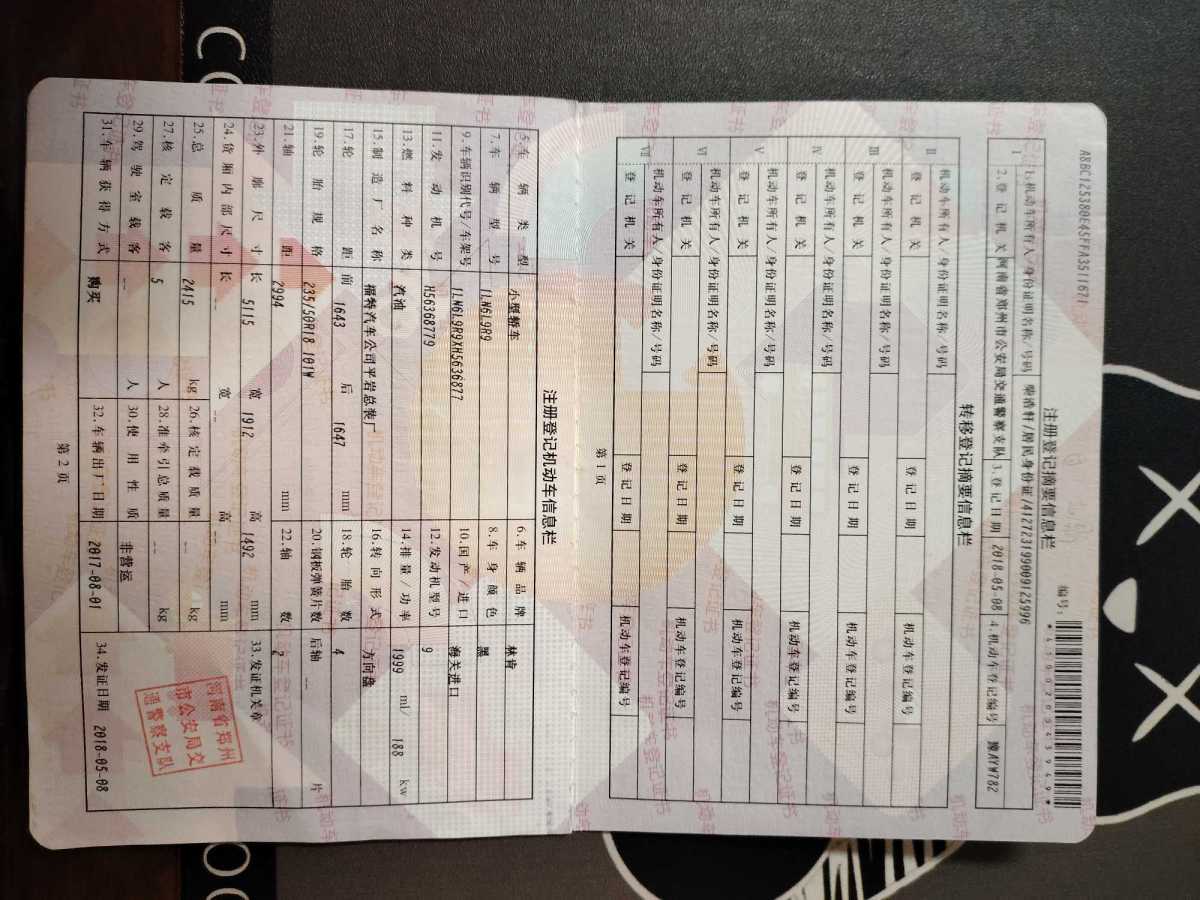 A8BC125380E45FFA3511671
注册登记摘要信息栏
编号:
*410020543949*
I 1.机动车所有人/身份证明名称/号码 柴浩轩/居民身份证/412723199009125996
2.登记机关 河南省郑州市公安局交通警察支队 3.登记日期 2018-05-08 4.机动车登记编号 豫AYW782
转移登记摘要信息栏
II 机动车所有人/身份证明名称/号码
登记机关 登记日期 机动车登记编号
III 机动车所有人/身份证明名称/号码
登记机关 登记日期 机动车登记编号
IV 机动车所有人/身份证明名称/号码
登记机关 登记日期 机动车登记编号
V 机动车所有人/身份证明名称/号码
登记机关 登记日期 机动车登记编号
VI 机动车所有人/身份证明名称/号码
登记机关 登记日期 机动车登记编号
VII 机动车所有人/身份证明名称/号码
登记机关 登记日期 机动车登记编号
第 1 页
注册登记机动车信息栏
5.车辆类型 小型轿车 6.车辆品牌 林肯
7.车辆型号 1LN6L9R9 8.车身颜色 黑
9.车辆识别代号/车架号 1LN6L9R9XH5636877 10.国产/进口 海关进口
11.发动机号 H56368779 12.发动机型号 9
13.燃料种类 汽油 14.排量/功率 1999 ml/ 188 kw
15.制造厂名称 福特汽车公司平岩总装厂 16.转向形式 方向盘
17.轮距 前 1643 后 1647 mm 18.轮胎数 4
19.轮胎规格 235/50R18 101W 20.钢板弹簧片数 后轴 -- 片
21.轴距 2994 mm 22.轴数 2
23.外廓尺寸 长 5115 宽 1912 高 1492 mm 33.发证机关章
24.货厢内部尺寸 长 -- 宽 -- 高 -- mm
25.总质量 2415 kg 26.核定载质量 -- kg
27.核定载客 5 人 28.准牵引总质量 -- kg
29.驾驶室载客 -- 人 30.使用性质 非营运
31.车辆获得方式 购买 32.车辆出厂日期 2017-08-01 34.发证日期 2018-05-08
河南省郑州
市公安局交
通警察支队
第 2 页